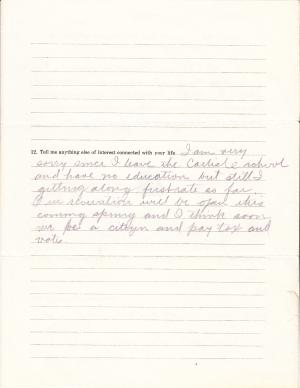 12. Tell me anything else of interest connected with your life I am very
sorry since I leave the Carlisle school
and have no education but still I
getting along first rate so far.
Our reservation will be open this
coming spring and I think soon
we be a citizen and pay tax and
vote.